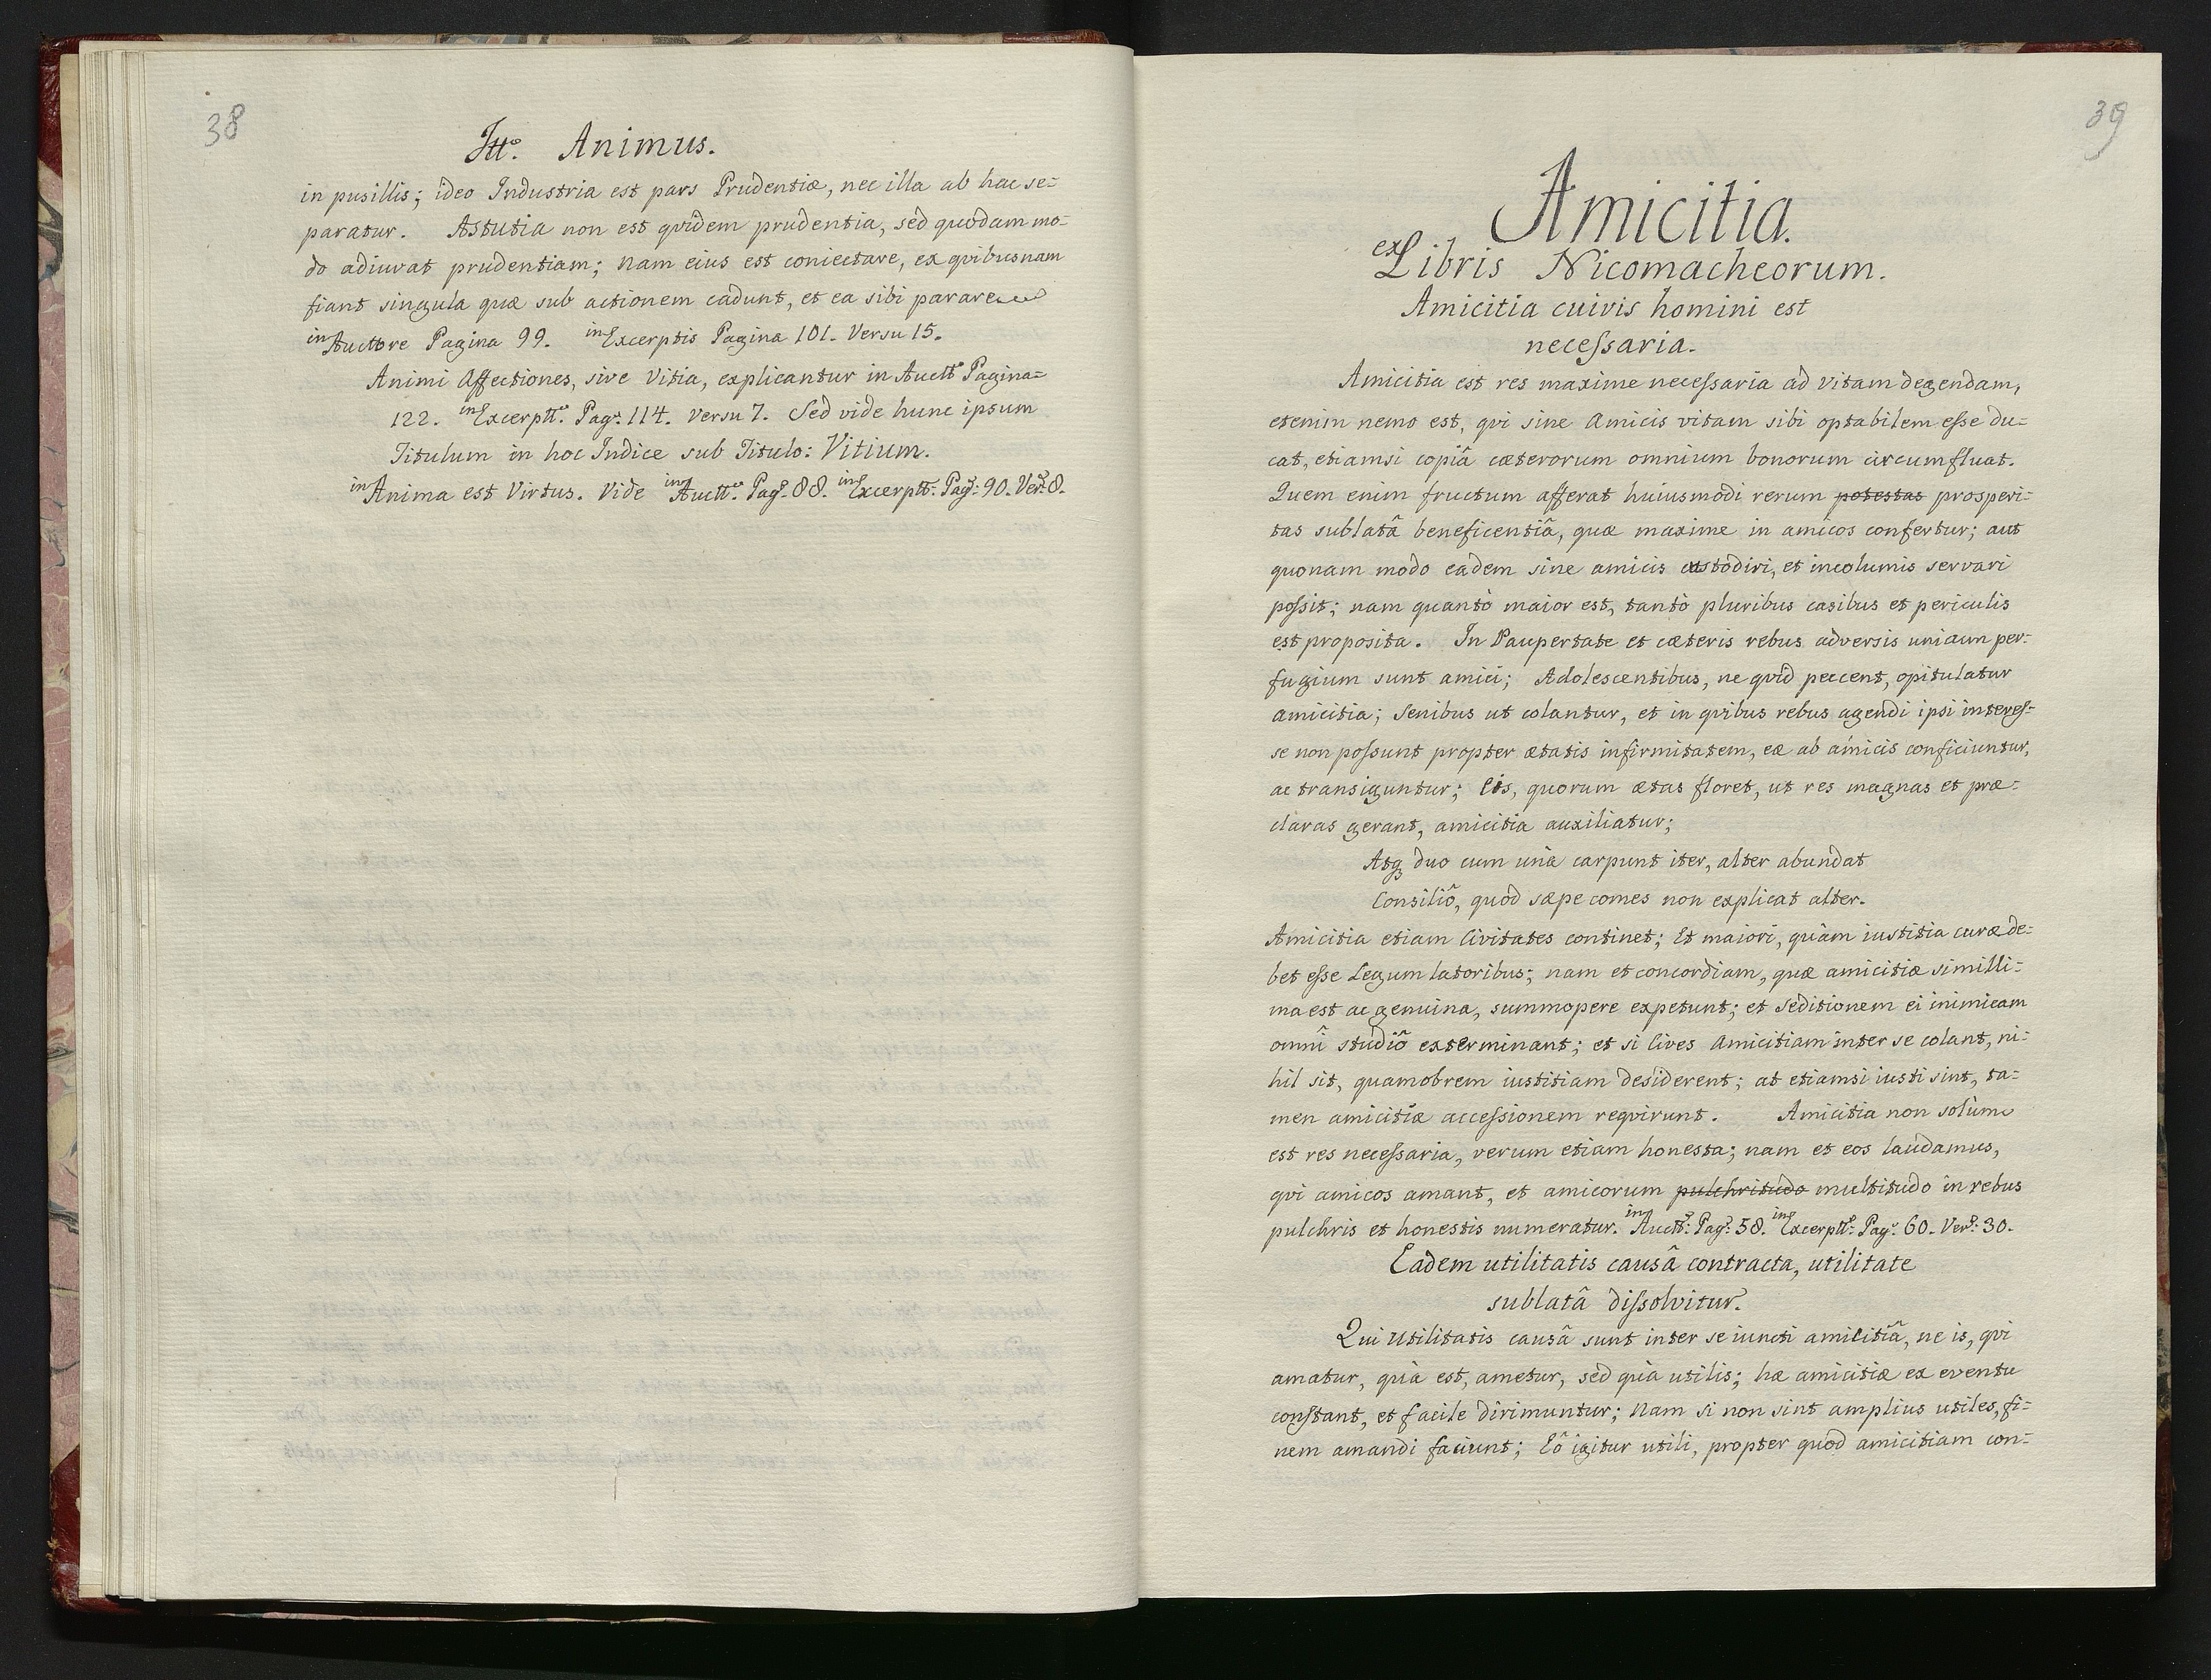 38
Ttt.o Animus.
in pusillis; ideo Industria est pars Prudentiæ, nec illa ab hac se=
paratur. Astutia non est qvidem prudentia, sed quodam mo=
do adiuvat prudentiam; Nam eius est coniectare, ex qvibusnam
fiant singula quæ sub actionem cadunt, et ea sibi parare
in Auctore Pagina 99. in Excerptis Pagina 101. Versu 15.
Animi Affectiones, sive Vitia, explicantur in Auctt.e Pagina=
122. in Excerptt.s Pag.a 114. Versu 7. Sed vide hunc ipsum
Titulum in hoc Indice sub Titulo: Vitium.
in Anima est Virtus. Vide in Auctt.e Pag.a 88. in Excerptt.s Pag.a: 90. Ver.u: 8.
39
Amicitia.
ex Libris Nicomacheorum.
Amicitia cuivis homini est
necessaria.
Amicitia est res maxime necessaria ad vitam degendam,
etenim nemo est, qvi sine Amicis vitam sibi optabilem esse du=
cat, etiamsi copiâ cæterorum omnium bonorum circumfluat.
Quem enim fructum afferat huiusmodi rerum potestas prosperi=
tas sublatâ beneficentiâ, quæ maxime in amicos confertur; aut
quonam modo eadem sine amicis custodiri, et incolumis servari
possit; nam quantò maior est, tantò pluribus casibus et periculis
est proposita. In Paupertate et cæteris rebus adversis unicum per=
fugium sunt amici; Adolescentibus, ne qvid peccent, opitulatur
amicitia; Senibus ut colantur, et in qvibus rebus agendi ipsi interes=
se non possunt propter ætatis infirmitatem, eæ ab amicis conficiuntur,
ac transiguntur; Eis, quorum ætas floret, ut res magnas et præ=
claras gerant, amicitia auxiliatur;
Atq3 duo cum unà carpunt iter, alter abundat
Consiliô, quod sæpe comes non explicat alter.
Amicitia etiam Civitates continet; Et maiori, quàm iustitia curæ de=
bet esse Legum latoribus; nam et concordiam, quæ amicitiæ simili=
ma est ac genuina, summopere expetunt; et Seditionem ei inimicam
omnî studiô exterminant; et si Cives Amicitiam inter se colant, ni=
hil sit, quamobrem iustitiam desiderent; at etiamsi iusti sint, ta=
men amicitiæ accessionem reqvirunt. Amicitia non solùm
est res necessaria, verum etiam honesta; nam et eos laudamus,
qvi amicos amant, et amicorum pulchritudo multitudo in rebus
pulchris et honestis numeratur. in Auctt.e: Pag.a: 58. in Excerptt.s: Pag.a: 60. Ver.u: 30.
Eadem utilitatis causâ contracta, utilitate
sublatâ dissolvitur.
Qui Utilitatis causâ sunt inter se iuncti amicitiâ, ne is, qvi
amatur, quià est, ametur, sed quia utilis; hæ amicitiæ ex eventu
constant, et facile dirimuntur; Nam si non sint amplius utiles, fi=
nem amandi faciunt; Eô igitur utili, propter quod amicitiam con=